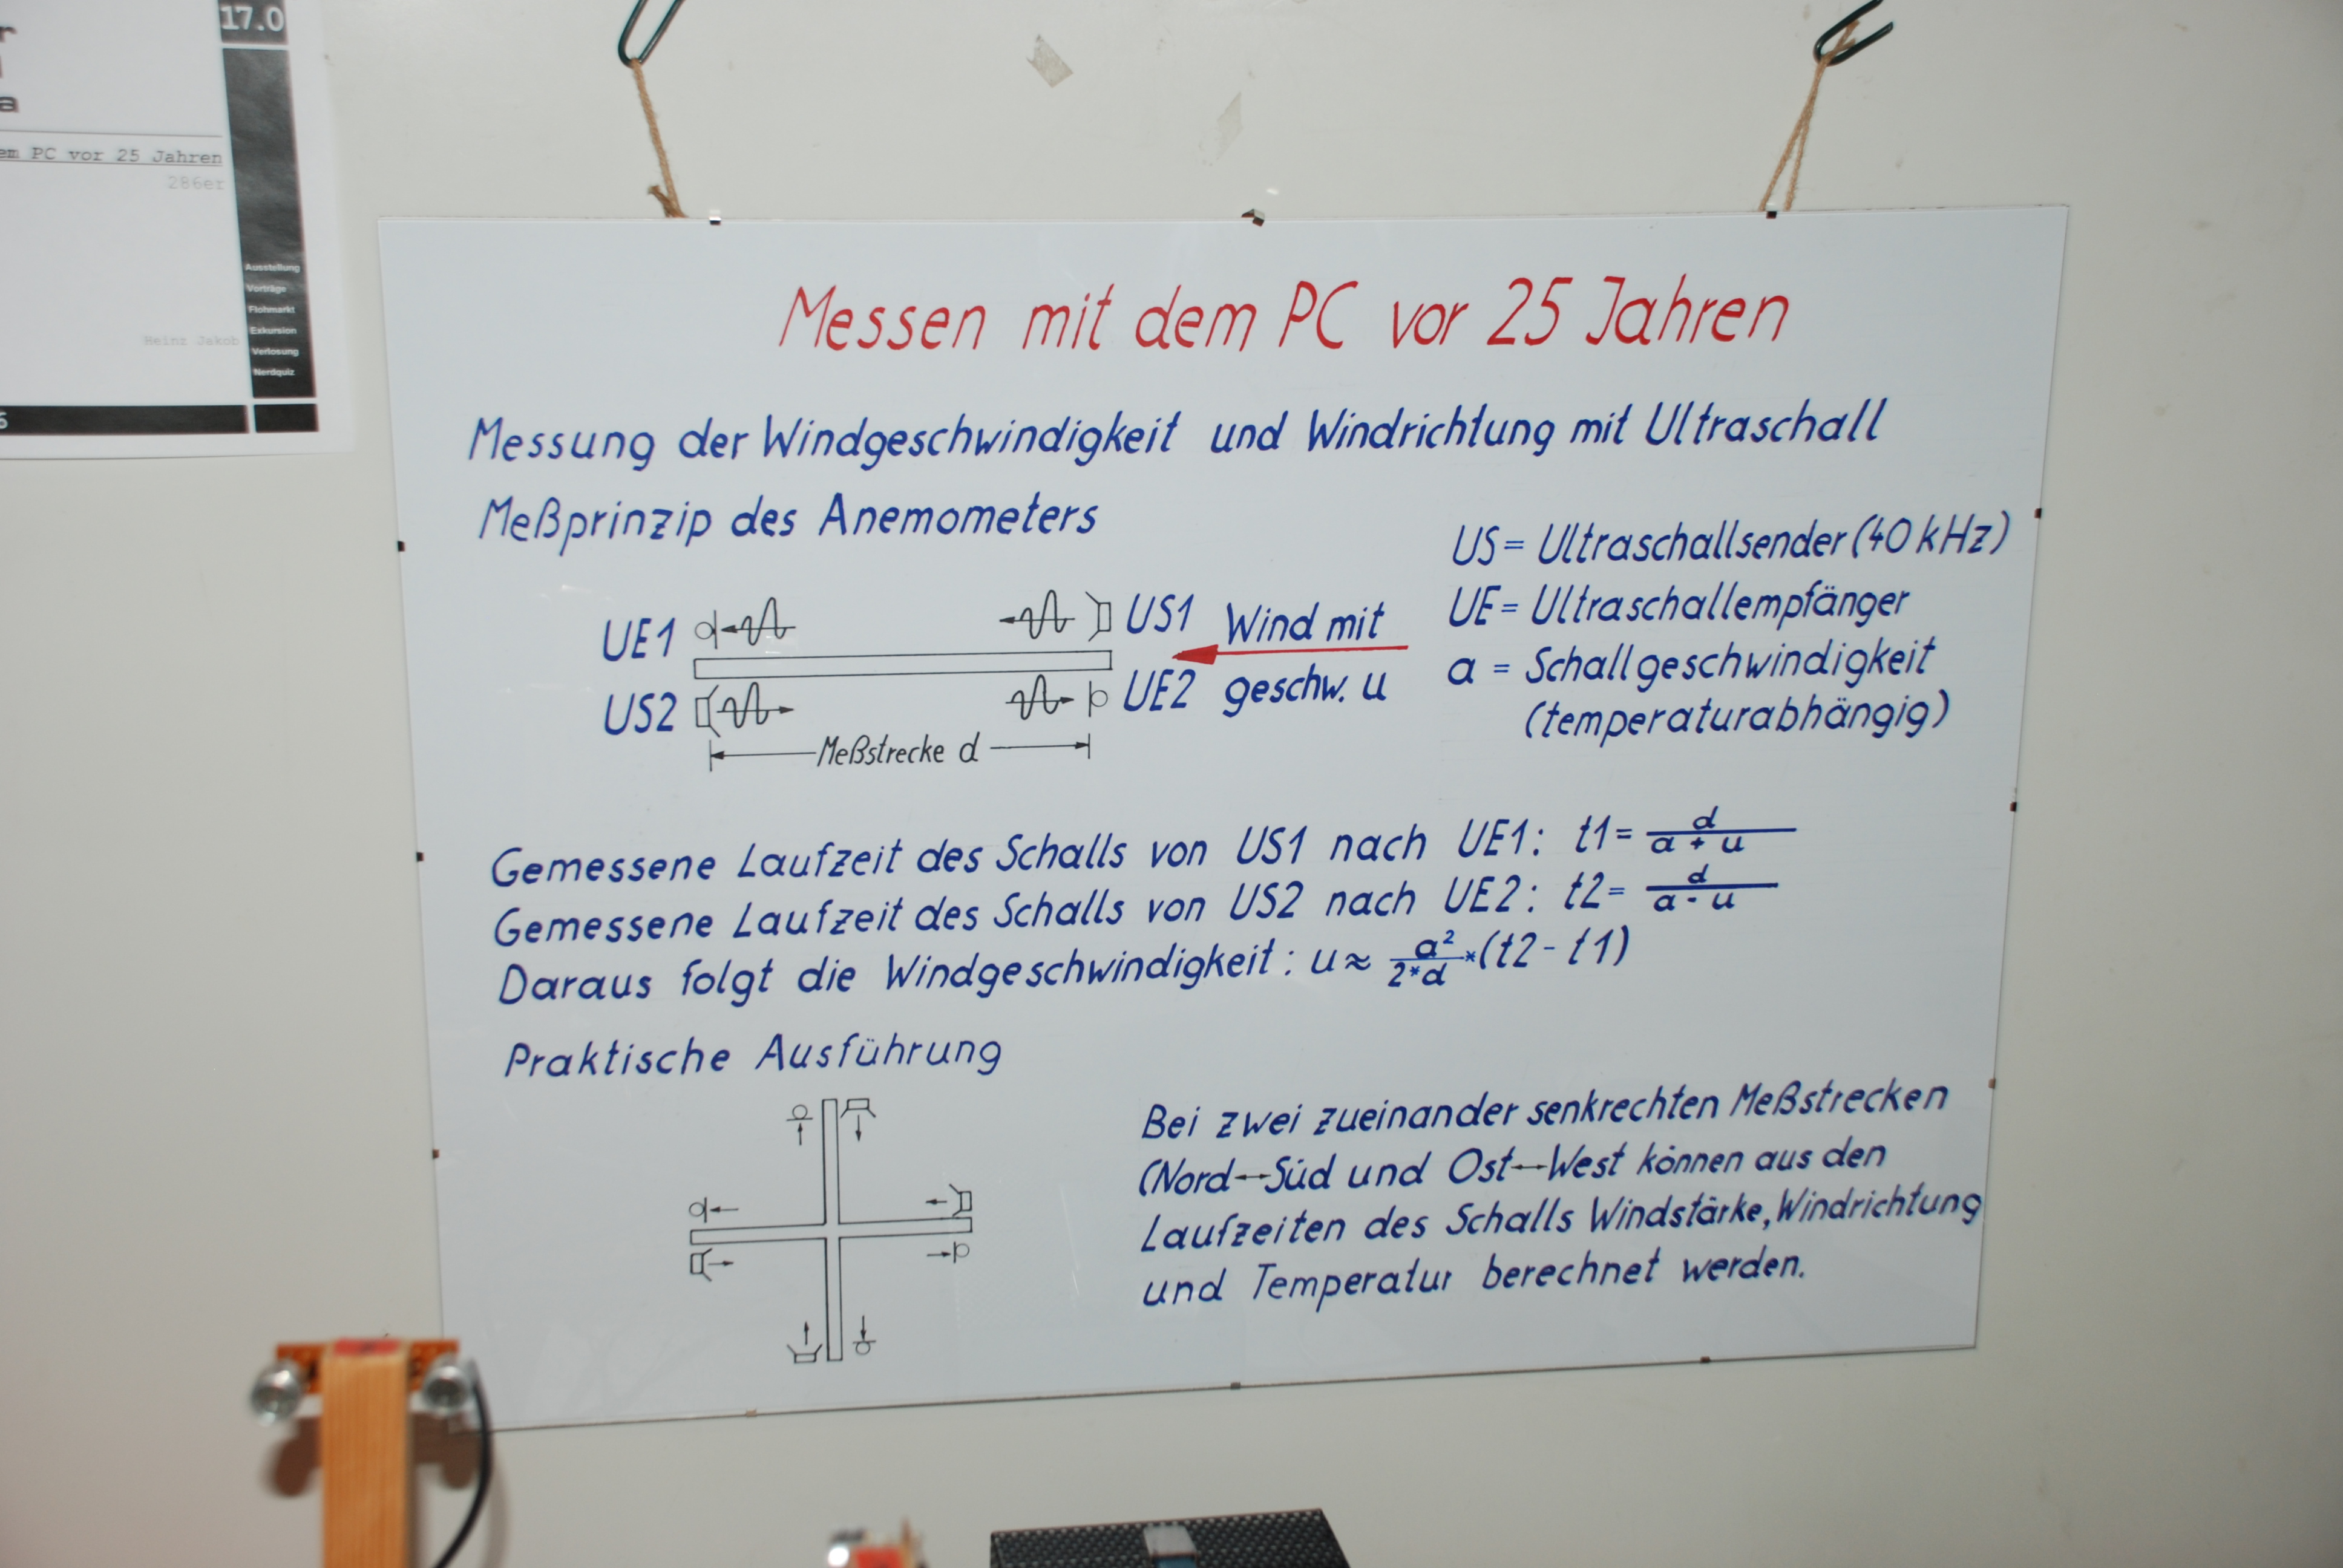 17.0
em PC vor 25 Jahren
286er
Heinz Jakob
Ausstellung
Vorträge
Flohmarkt
Exkursion
Verlosung
Nerdquiz
Messen mit dem PC vor 25 Jahren
Messung der Windgeschwindigkeit und Windrichtung mit Ultraschall
Meßprinzip des Anemometers
US = Ultraschallsender (40 kHz)
UE = Ultraschallempfänger
a = Schallgeschwindigkeit
(temperaturabhängig)
UE1 US1 Wind mit
US2 UE2 geschw. u
Meßstrecke d
Gemessene Laufzeit des Schalls von US1 nach UE1: t1 = d / (a + u)
Gemessene Laufzeit des Schalls von US2 nach UE2: t2 = d / (a - u)
Daraus folgt die Windgeschwindigkeit: u ≈ a² / (2*d) * (t2 - t1)
Praktische Ausführung
Bei zwei zueinander senkrechten Meßstrecken
(Nord↔Süd und Ost↔West können aus den
Laufzeiten des Schalls Windstärke, Windrichtung
und Temperatur berechnet werden.